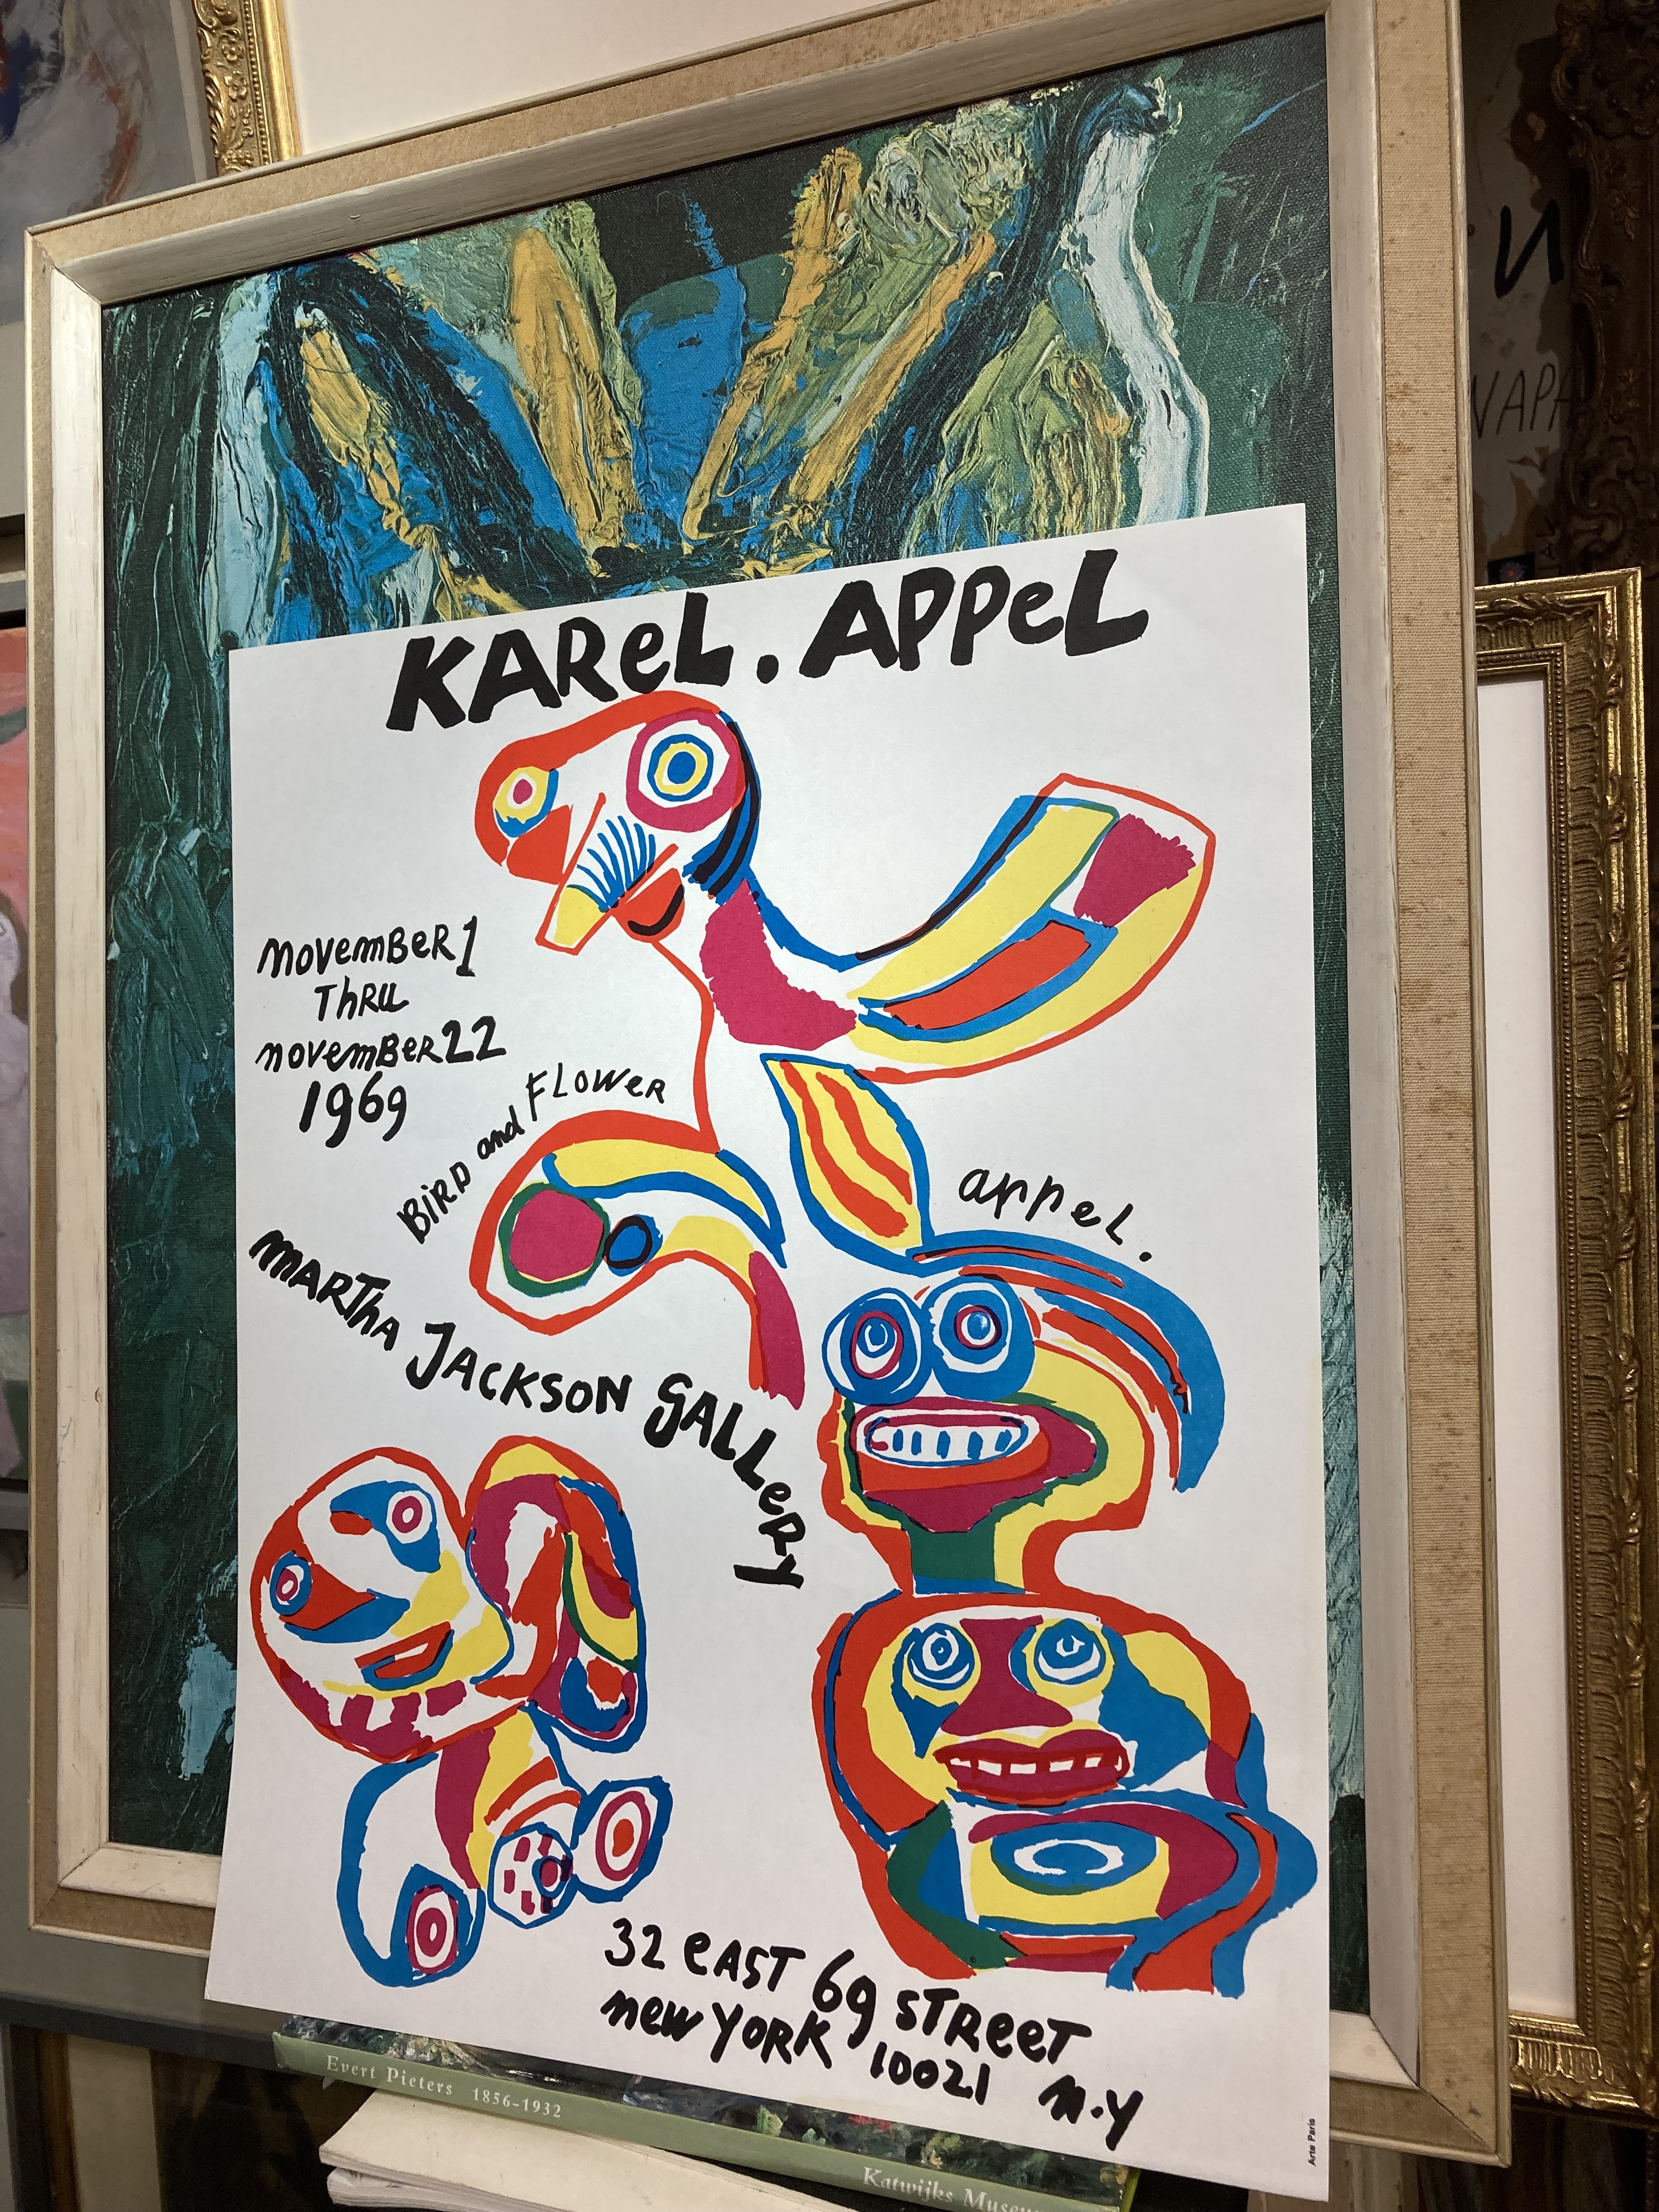 KAReL. APPeL
november 1
Thru
november 22
1969
BiRD and FLOWeR
appel.
marTha JACKSON GALLeRy
32 eAST 69 STReeT
new YORK 10021 n.y
Arte Paris
Evert Pieters 1856-1932